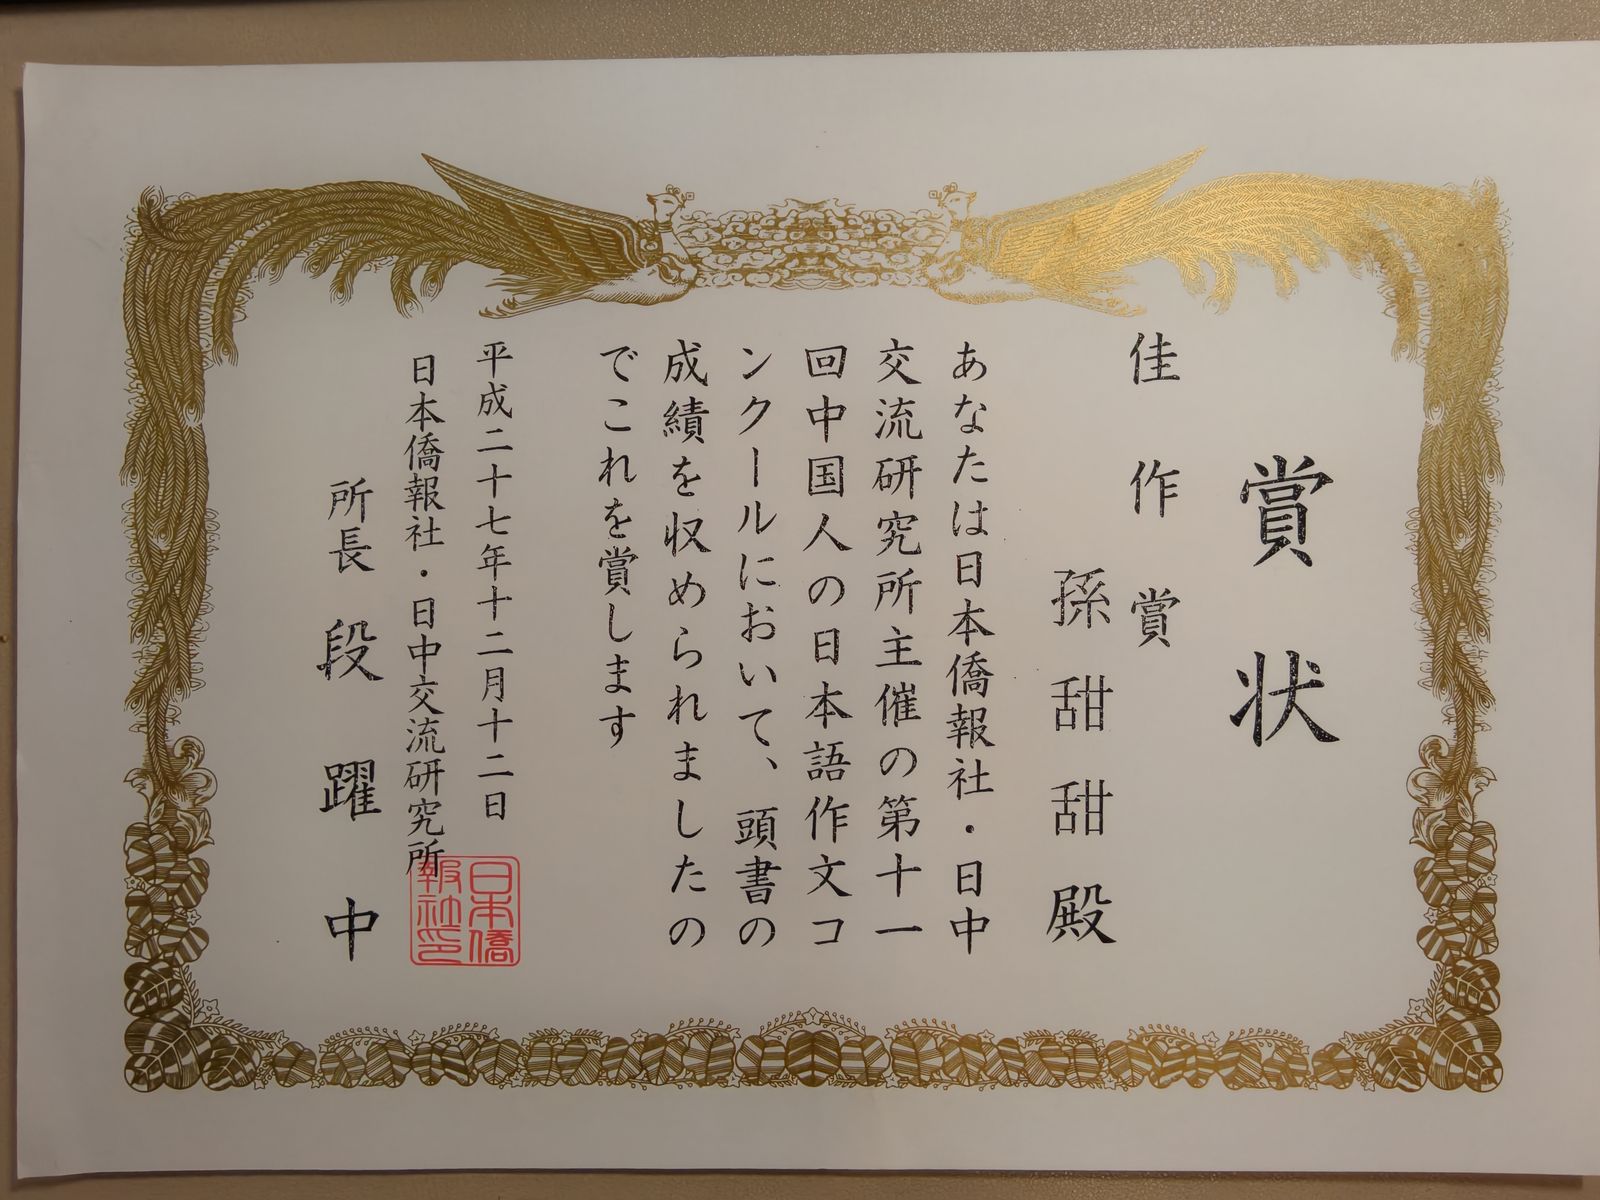 賞状
佳作賞
孫甜甜殿
あなたは日本僑報社・日中
交流研究所主催の第十一
回中国人の日本語作文コ
ンクールにおいて、頭書の
成績を収められましたの
でこれを賞します
平成二十七年十二月十二日
日本僑報社・日中交流研究所
所長 段躍中
日本僑
報社印